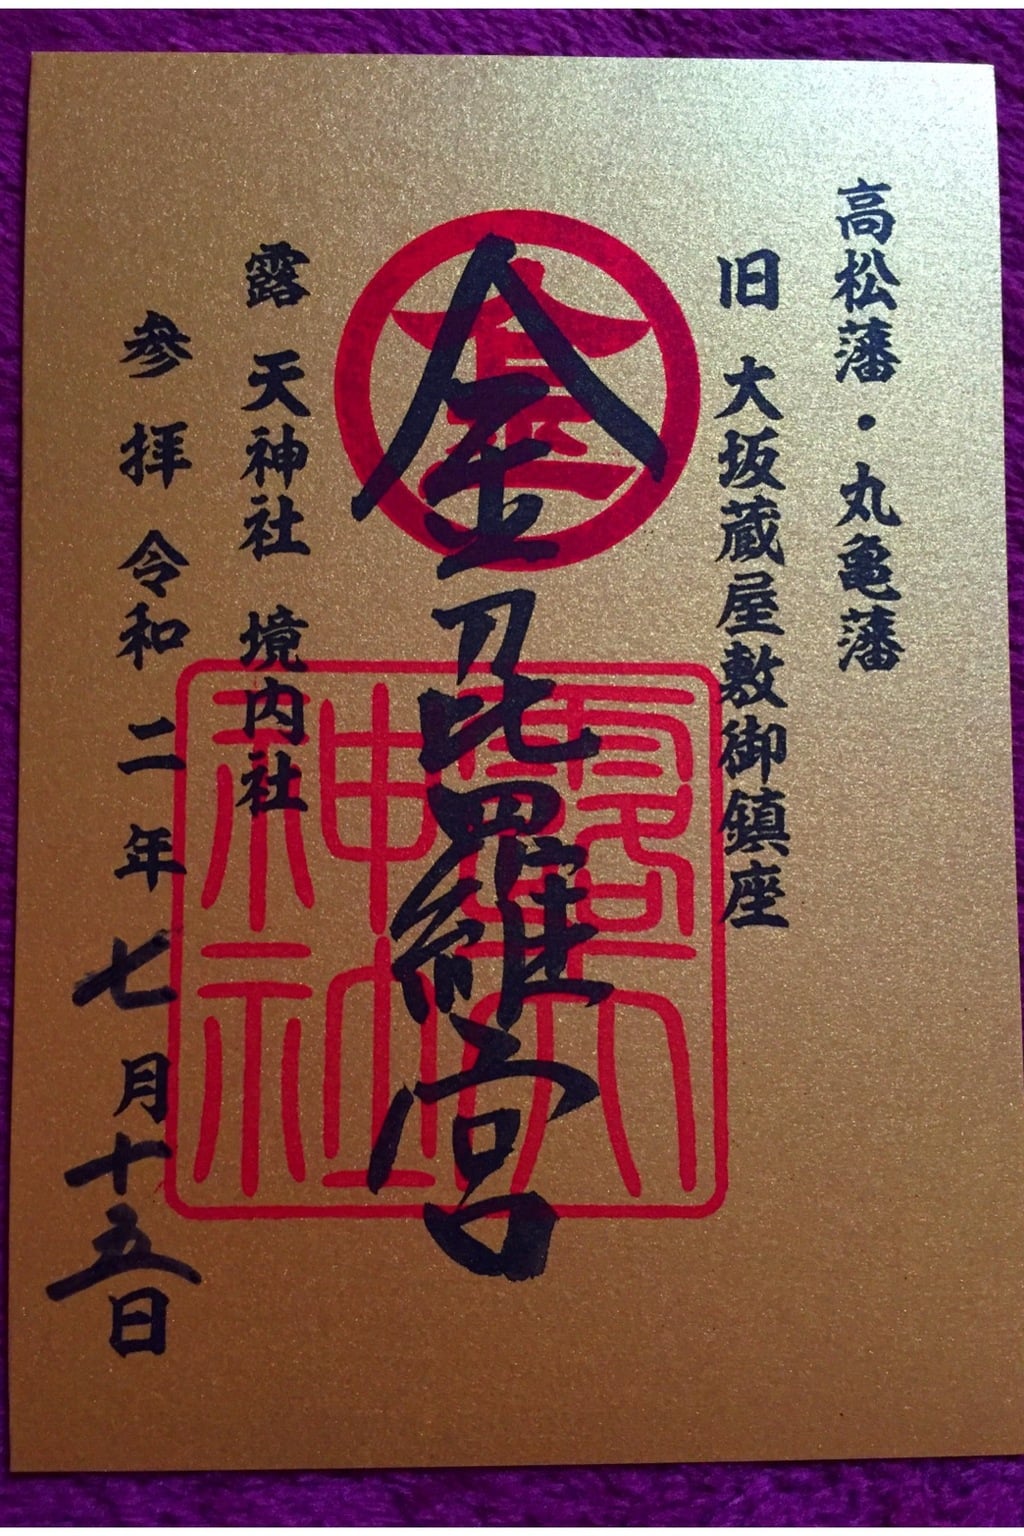 高松藩・丸亀藩
旧 大坂蔵屋敷御鎮座
金毘羅宮
金
露天神社
露 天神社 境内社
参拝 令和 二年 七月十五日